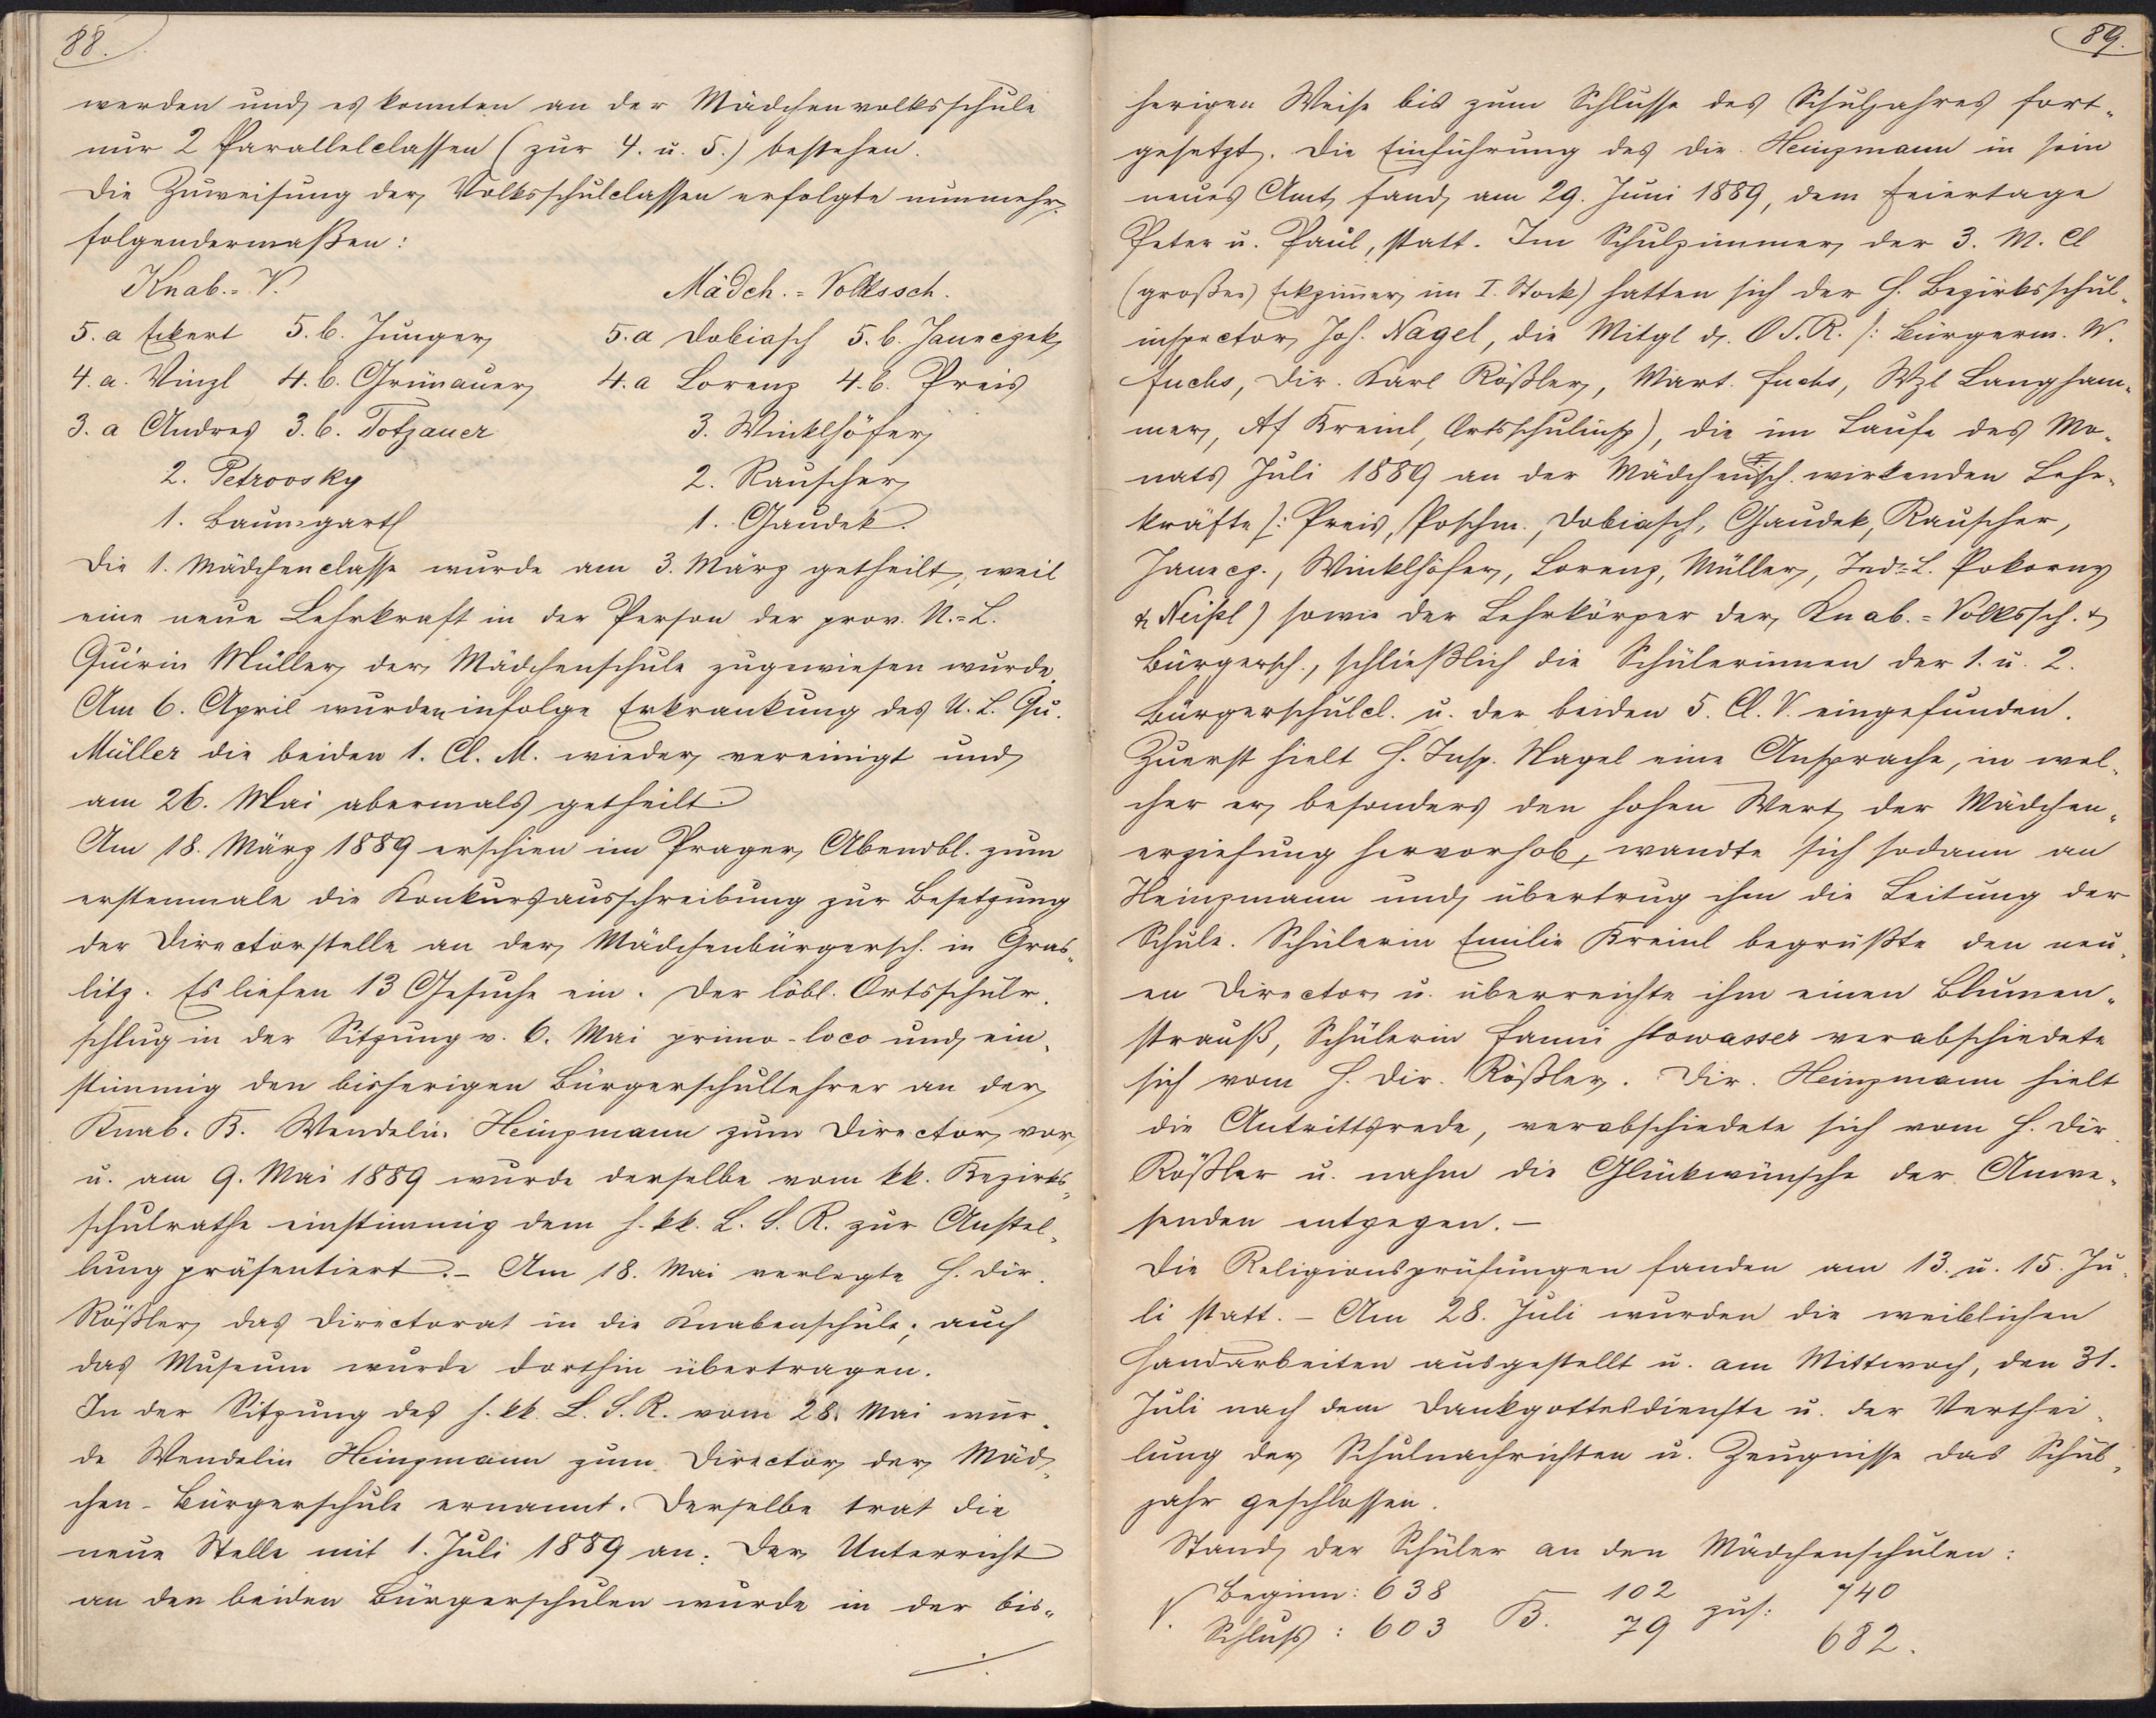 88.
werden und es konnten an der Mädchenvolksschule
nur 2 Parallelclassen (zur 4. u. 5.) bestehen.
Die Zuweisung der Volksschulclassen erfolgte nunmehr
folgendermaßen:
Knab.=V. Mädch.=Volkssch.
5.a Eckert 5.b. Junger 5.a Dobiasch 5.b. Janeczek
4.a. Vinzl 4.b. Grünauer 4.a Lorenz 4.b. Preis
3.a Andres 3.b. Totzauer 3. Winklhöfer
2. Petrovsky 2. Rauscher
1. Baumgartl 1. Gaudek.
Die 1. Mädchenclasse wurde am 3. März getheilt, weil
eine neue Lehrkraft in der Person der prov. U.=L.
Quirin Müller der Mädchenschule zugewiesen wurde.
Am 6. April wurden infolge Erkrankung des U.L. Qu.
Müller die beiden 1. Cl. M. wieder vereinigt und
am 26. Mai abermals getheilt.
Am 18. März 1889 erschien im Prager Abendbl. zum
erstenmale die Konkursausschreibung zur Besetzung
der Directorstelle an der Mädchenbürgersch. in Gras-
litz. Es liefen 13 Gesuche ein. Der löbl. Ortsschulr.
schlug in der Sitzung v. 6. Mai primo-loco und ein-
stimmig den bisherigen Bürgerschullehrer an der
Knab. B. Wendelin Heinzmann zum Director vor
u. am 9. Mai 1889 wurde derselbe vom kk. Bezirks-
schulrathe einstimmig dem h. kk. L.S.R. zur Anstel-
lung präsentiert. – Am 18. Mai verlegte H. Dir.
Rößler das Directorat in die Knabenschule; auch
das Museum wurde dorthin übertragen.
In der Sitzung des h. kk. L.S.R. vom 28. Mai wur-
de Wendelin Heinzmann zum Director der Mäd-
chen-Bürgerschule ernannt. Derselbe trat die
neue Stelle mit 1. Juli 1889 an. Der Unterricht
an den beiden Bürgerschulen wurde in der bis-
./.
89.
herigen Weise bis zum Schlusse des Schuljahres fort-
gesetzt. Die Einführung des Dir. Heinzmann in sein
neues Amt fand am 29. Juni 1889, dem Feiertage
Peter u. Paul, statt. Im Schulzimmer der 3. M. Cl
(großes Eckzimmer im I. Stock) hatten sich der H. Bezirksschul-
inspector Joh. Nagel, die Mitgl d. O.S.R. /: Bürgerm. W.
Fuchs, Dir. Karl Rößler, Mart. Fuchs, Wzl Langham-
mer, Kreinl, Ortsschulinsp), die im Laufe des Mo-
nats Juli 1889 an der Mädchensch. wirkenden Lehr-
kräfte /: Preis, Poschm., Dobiasch, Gaudek, Rauscher,
Janecz., Winklhöfer, Lorenz, Müller, Ind.=L. Pokorny
& Neißl) sowie der Lehrkörper der Knab.=Volkssch. &
Bürgersch., schließlich die Schülerinnen der 1. u. 2.
Bürgerschulcl. u. der beiden 5. Cl. V. eingefunden.
Zuerst hielt H. Insp. Nagel eine Ansprache, in wel-
cher er besonders den hohen Wert der Mädchen-
erziehung hervorhob, wandte sich sodann an
Heinzmann und übertrug ihm die Leitung der
Schule. Schülerin Emilie Kreinl begrüßte den neu-
en Director u. überreichte ihm einen Blumen-
strauß, Schülerin Fanni Howasser verabschiedete
sich vom H. Dir. Rößler. Dir. Heinzmann hielt
die Antrittsrede, verabschiedete sich vom H. Dir.
Rößler u. nahm die Glückwünsche der Anwe-
senden entgegen. –
Die Religionsprüfungen fanden am 13. u. 15. Ju-
li statt. – Am 28. Juli wurden die weiblichen
Handarbeiten ausgestellt u. am Mittwoch, den 31.
Juli nach dem Dankgottesdienste u. der Verthei-
lung der Schulnachrichten u. Zeugnisse das Schul-
jahr geschlossen.
Stand der Schüler an den Mädchenschulen:
V. Beginn: 638 B. 102 zus: 740
Schluss: 603 79 682.